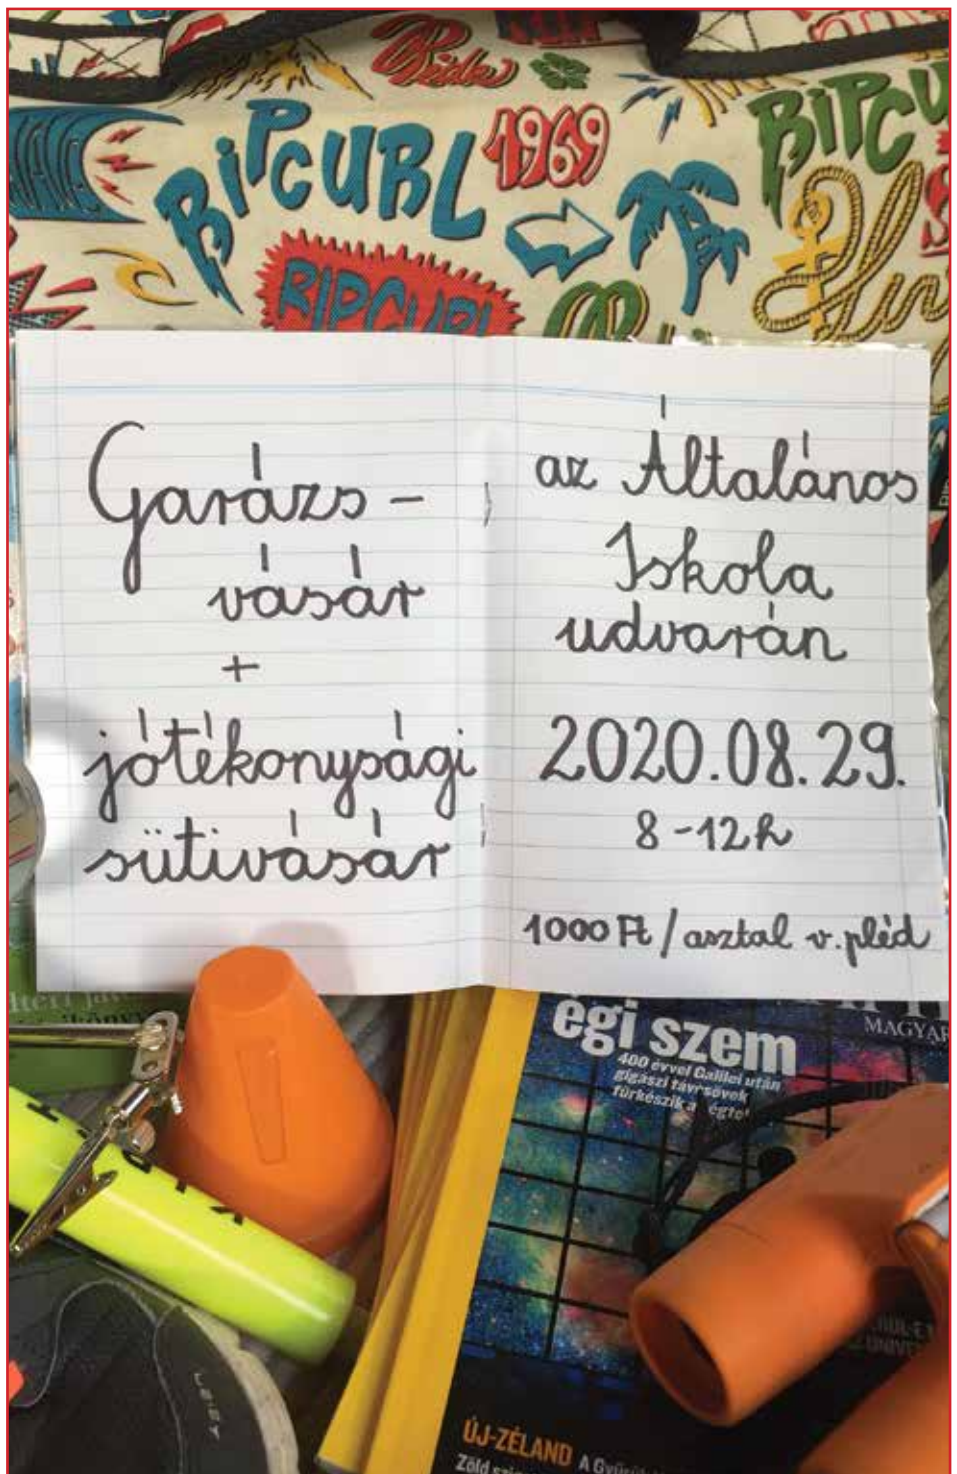 Ride
RIPCURL
1969
RIPCU
RIPCURL
Garázs-
vásár
+
jótékonysági
sütivásár
az Általános
Iskola
udvarán
2020.08.29.
8-12h
1000 Ft / asztal v. pléd
égi szem
400 évvel Galilei után
gigászi távcsövek
fürkészik a
MAGYAR
ÚJ-ZÉLAND A
Zöld